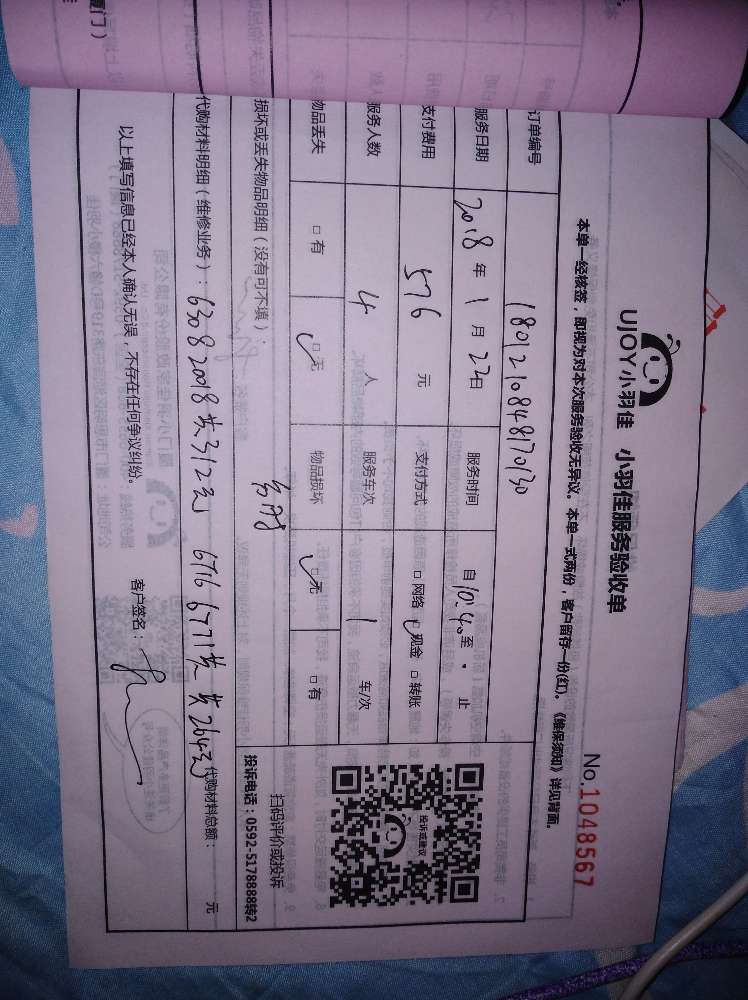 UJOY小羽佳 小羽佳服务验收单
No.1048567
本单一经核签，即视为对本次服务验收无异议。本单一式两份，客户留存一份(红)。《维保须知》详见背面。
订单编号 180121084817０130
服务日期 2018 年 1 月 22 日 服务时间 自 10:40 至 · 止
支付费用 576 元 支付方式 □ 网络 □ 现金 □ 转账
服务人数 4 人 服务车次 1 车/次
物品丢失 □ 有 □ 无 物品损坏 □ 无 □ 有
投诉或建议
扫码评价或投诉
投诉电话：0592-5178888转2
损坏或丢失物品明细（没有可不填）：
代购材料明细（维修业务）：6308 20018 共312元 6716 6771共 共264元 代购材料总额： 元
以上填写信息已经本人确认无误，不存在任何争议纠纷。
客户签名：